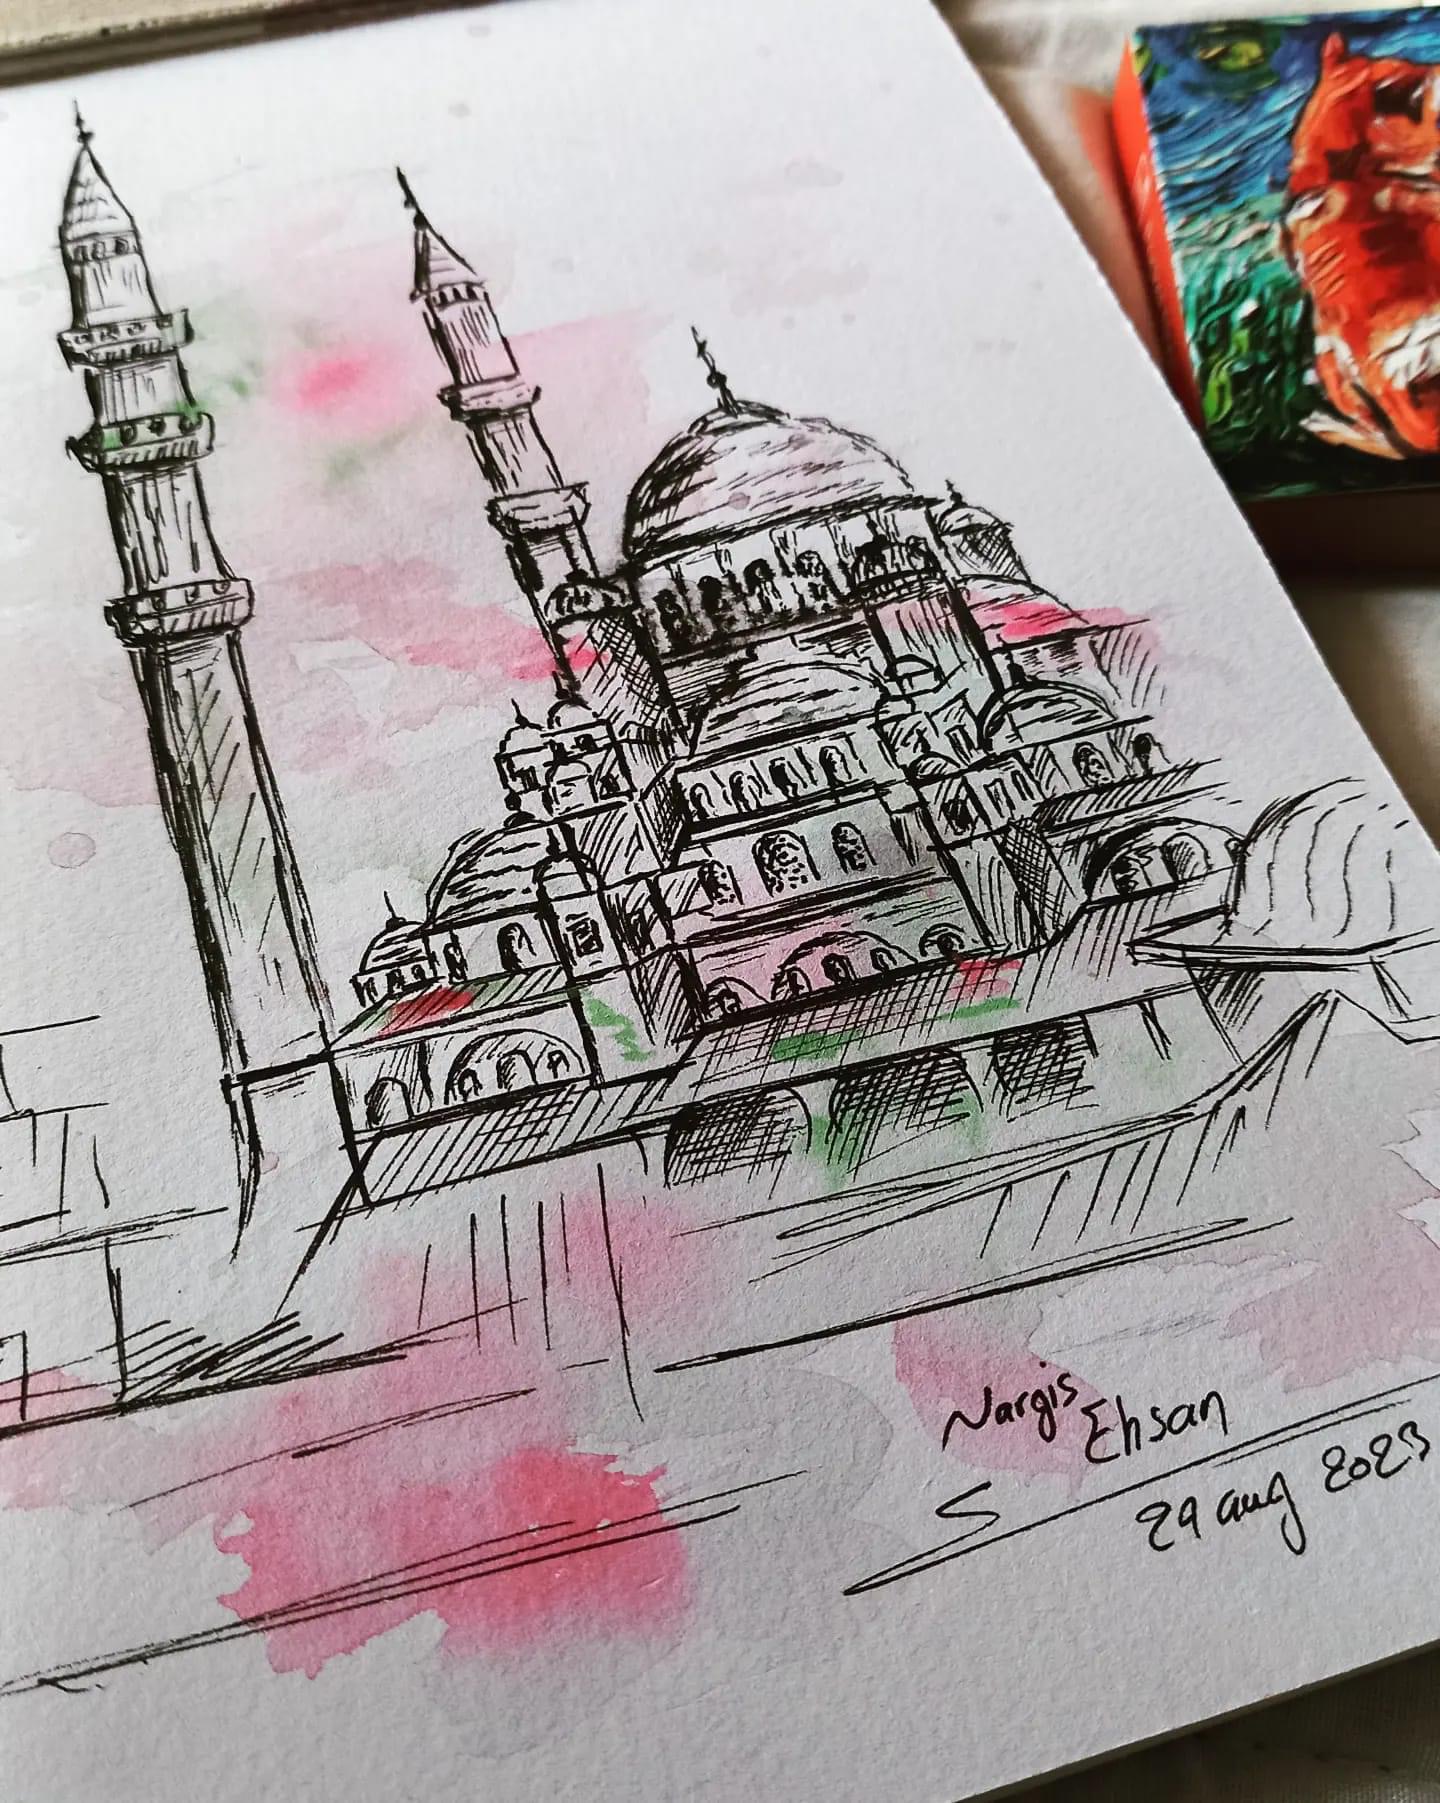 Nargis
Ehsan
29 aug 2023